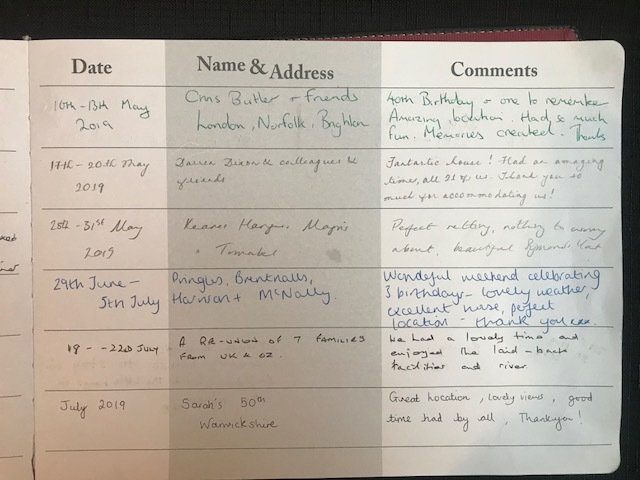 Date
Name & Address
Comments
10th - 13th May
2019
Chris Butler + Friends
London, Norfolk, Brighton
40th Birthday - one to remember
Amazing location. Had so much
fun. Memories created. Thanks
17th - 20th May
2019
Darren Dixon & colleagues &
friends
Fantastic house! Had an amazing
time, all 21 of us. Thank you so
much for accommodating us!
28th - 31st May
2019
Perfect setting, nothing to worry
about, beautiful
29th June -
5th July
Pringles, Brentnalls,
Harrison + McNally.
Wonderful weekend celebrating
3 birthdays - lovely weather,
excellent house, perfect
location - thank you xxx.
19 - -22nd July
A RE-UNION OF 7 FAMILIES
FROM UK & OZ.
We had a lovely time and
enjoyed the laid-back
facilities and river
July 2019
Sarah's 50th
Warwickshire
Great Location, lovely views, good
time had by all, Thankyou!